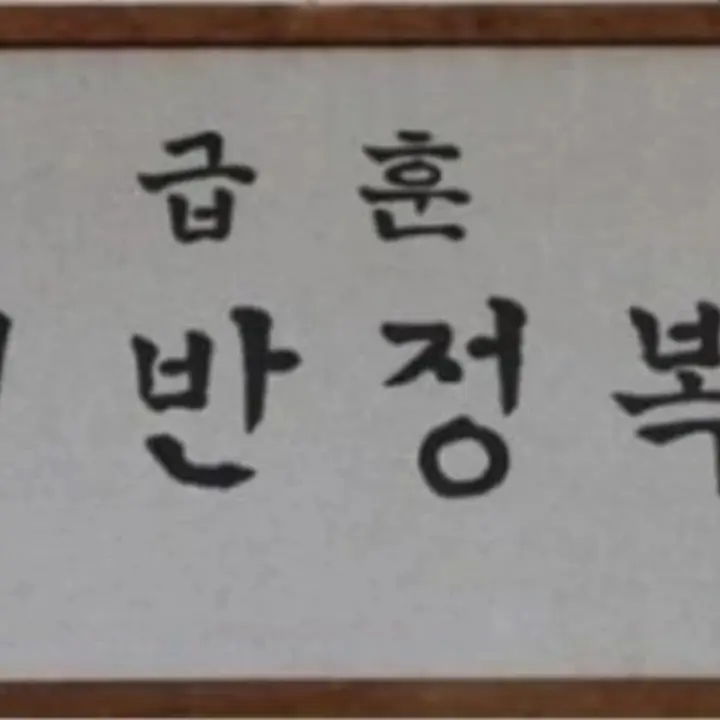 급 훈
반 정 복